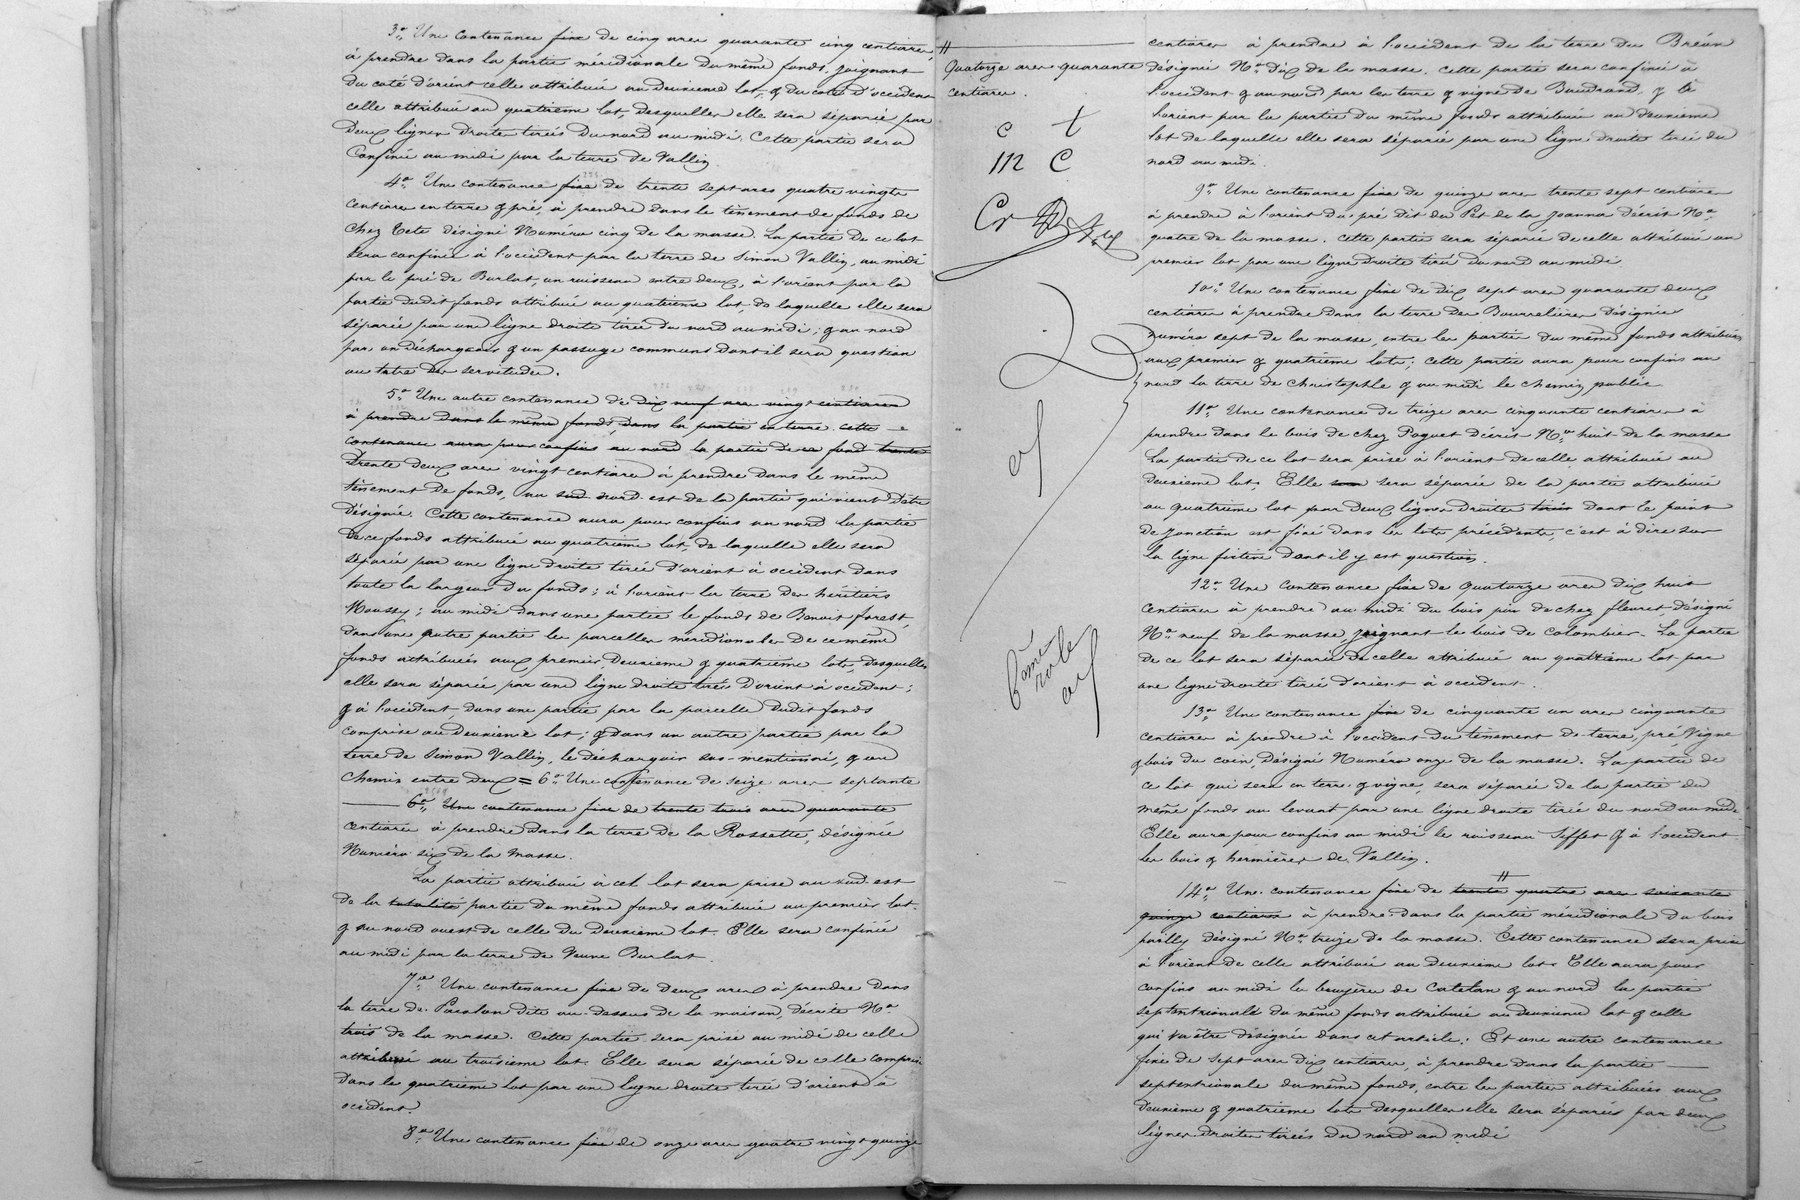 3° Une contenance fixe de cinq ares quarante cinq centiares,
à prendre dans la partie méridionale du même fonds, joignant
du coté d'orient celle attribuée au deuxieme lot, & du coté d'occident
celle attribuée au quatrieme lot, desquelles elle sera séparée par
deux lignes droites tirées du nord au midi. Cette partie sera
Confinée au midi par la terre de Vallin.
4° Une contenance fixe de trente sept ares quatre vingts
centiares en terre & pré, à prendre dans le tènement de fonds de
chez Tete désigné Numéro cinq de la masse. La partie de ce lot
sera confinée à l'occident par la terre de Simon Vallin, au midi
par le pré de Burlat, un ruisseau entre deux, à l'orient par la
partie dudit fonds attribuée au quatrieme lot, de laquelle elle sera
séparée par une ligne droite tirée du nord au midi; & au nord
par un déchargeoir & un passage communs dont il sera question
au titre des servitudes.
5° Une autre contenance de dix neuf ares vingt centiares
à prendre dans le même fonds, dans la partie en terre. cette
contenance aura pour confins au nord la partie de ce fond trente
trente deux ares vingt centiares à prendre dans le même
tènement de fonds, au sud nord-est de la partie qui vient d'être
désignée. Cette contenance aura pour confins au nord la partie
de ce fonds attribuée au quatrieme lot, de laquelle elle sera
séparée par une ligne droite tirée d'orient à occident dans
toute la largeur du fonds; à l'orient la terre des héritiers
Moussy; au midi dans une partie le fonds de Benoit forest,
dans une autre partie les parcelles méridionales de ce même
fonds attribuées aux premier deuxieme & quatrieme lots, desquelles
elle sera séparée par une ligne droite tirée d'orient à occident;
& à l'occident dans une partie, par la parcelle dudit fonds
comprise au deuxieme lot; & dans un autre partie par la
terre de Simon Vallin, le déchargeoir sus-mentionné, & un
chemin entre deux = 6° Une contenance de seize ares septante
6° Une contenance fixe de trente trois ares quarante
centiares à prendre dans la terre de la Rossette, désignée
Numéro six de la masse.
La partie attribuée à cet lot sera prise au sud-est
de la totalité partie du même fonds attribuée au premier lot.
& au nord ouest de celle du deuxieme lot. Elle sera confinée
au midi par la terre de Veuve Burlat.
7° Une contenance fixe de deux ares à prendre dans
la terre de Paisson dite au-dessus de la maison, décrite N°
trois de la masse. Cette partie sera prise au midi de celle
attribuée au troisieme lot. Elle sera séparée de celle comprise
dans le quatrieme lot par une ligne droite tirée d'orient à
occident.
8° Une contenance fixe de onze ares quatre vingt quinze
#
quatorze ares quarante
centiares.
c t
112 C
Cr
6ème
role
centiares à prendre à l'occident de la terre du Bréan
désignée N° dix de la masse. cette partie sera confinée à
l'occident & au nord par les terre & vigne de Baudrand, & à
l'orient par la partie du même fonds attribuée au deuxieme
lot de laquelle elle sera séparée par une ligne droite tirée du
nord au midi.
9° Une contenance fixe de quinze ares trente sept centiares
à prendre à l'orient du pré dit du Pet de la Joanna décrit N°
quatre de la masse. cette partie sera séparée de celle attribuée au
premier lot par une ligne droite tirée du nord au midi.
10° Une contenance fixe de dix sept ares quarante deux
centiares à prendre dans la terre des Bourrelières désignée
numéro sept de la masse, entre les parties du même fonds attribuées
aux premier & quatrième lots; cette partie aura pour confins au
nord la terre de Christophle & au midi le chemin public
11° Une contenance de treize ares cinquante centiares à
prendre dans le bois de chez Poquet décrit N° huit de la masse
La partie de ce lot sera prise à l'orient de celle attribuée au
deuxieme lot. Elle sera sera séparée de la partie attribuée
au quatrieme lot par deux lignes droites tirées dont le point
de jonction est fixé dans les lots précédents, c'est à dire sur
la ligne fictive dont il y est question.
12° Une contenance fixe de quatorze ares dix huit
centiares à prendre au midi du bois pin de chez fleuret désigné
N° neuf de la masse, joignant le bois de Colombier. La partie
de ce lot sera séparée de celle attribuée au quattieme lot par
une ligne droite tirée d'orient à occident.
13° Une contenance fixe de cinquante un ares cinquante
centiares à prendre à l'occident du tènement de terre, pré Vigne
& bois du coin, désigné Numéro onze de la masse. La partie de
ce lot qui sera en terre & vigne, sera séparée de la partie du
même fonds au levant par une ligne droite tirée du nord au midi.
Elle aura pour confins au midi le ruisseau Siffet & à l'occident
les bois & hermières de Vallin.
#
14° Une contenance fixe de trente quatre ares soixante
quinze centiares à prendre dans la partie méridionale du bois
pailly désigné N° treize de la masse. Cette contenance sera prise
à l'orient de celle attribuée au deuxieme lot. Elle aura pour
confins au midi la bruyère de Catelan & au nord la partie
septentrionale du même fonds attribuée au deuxieme lot & celle
qui va être désignée dans cet article. Et une autre contenance
fixe de sept ares dix centiares, à prendre dans la partie
septentrionale du même fonds, entre les parties attribuées aux
deuxième & quatrieme lots desquelles elle sera séparée par deux
lignes droites tirées du nord au midi